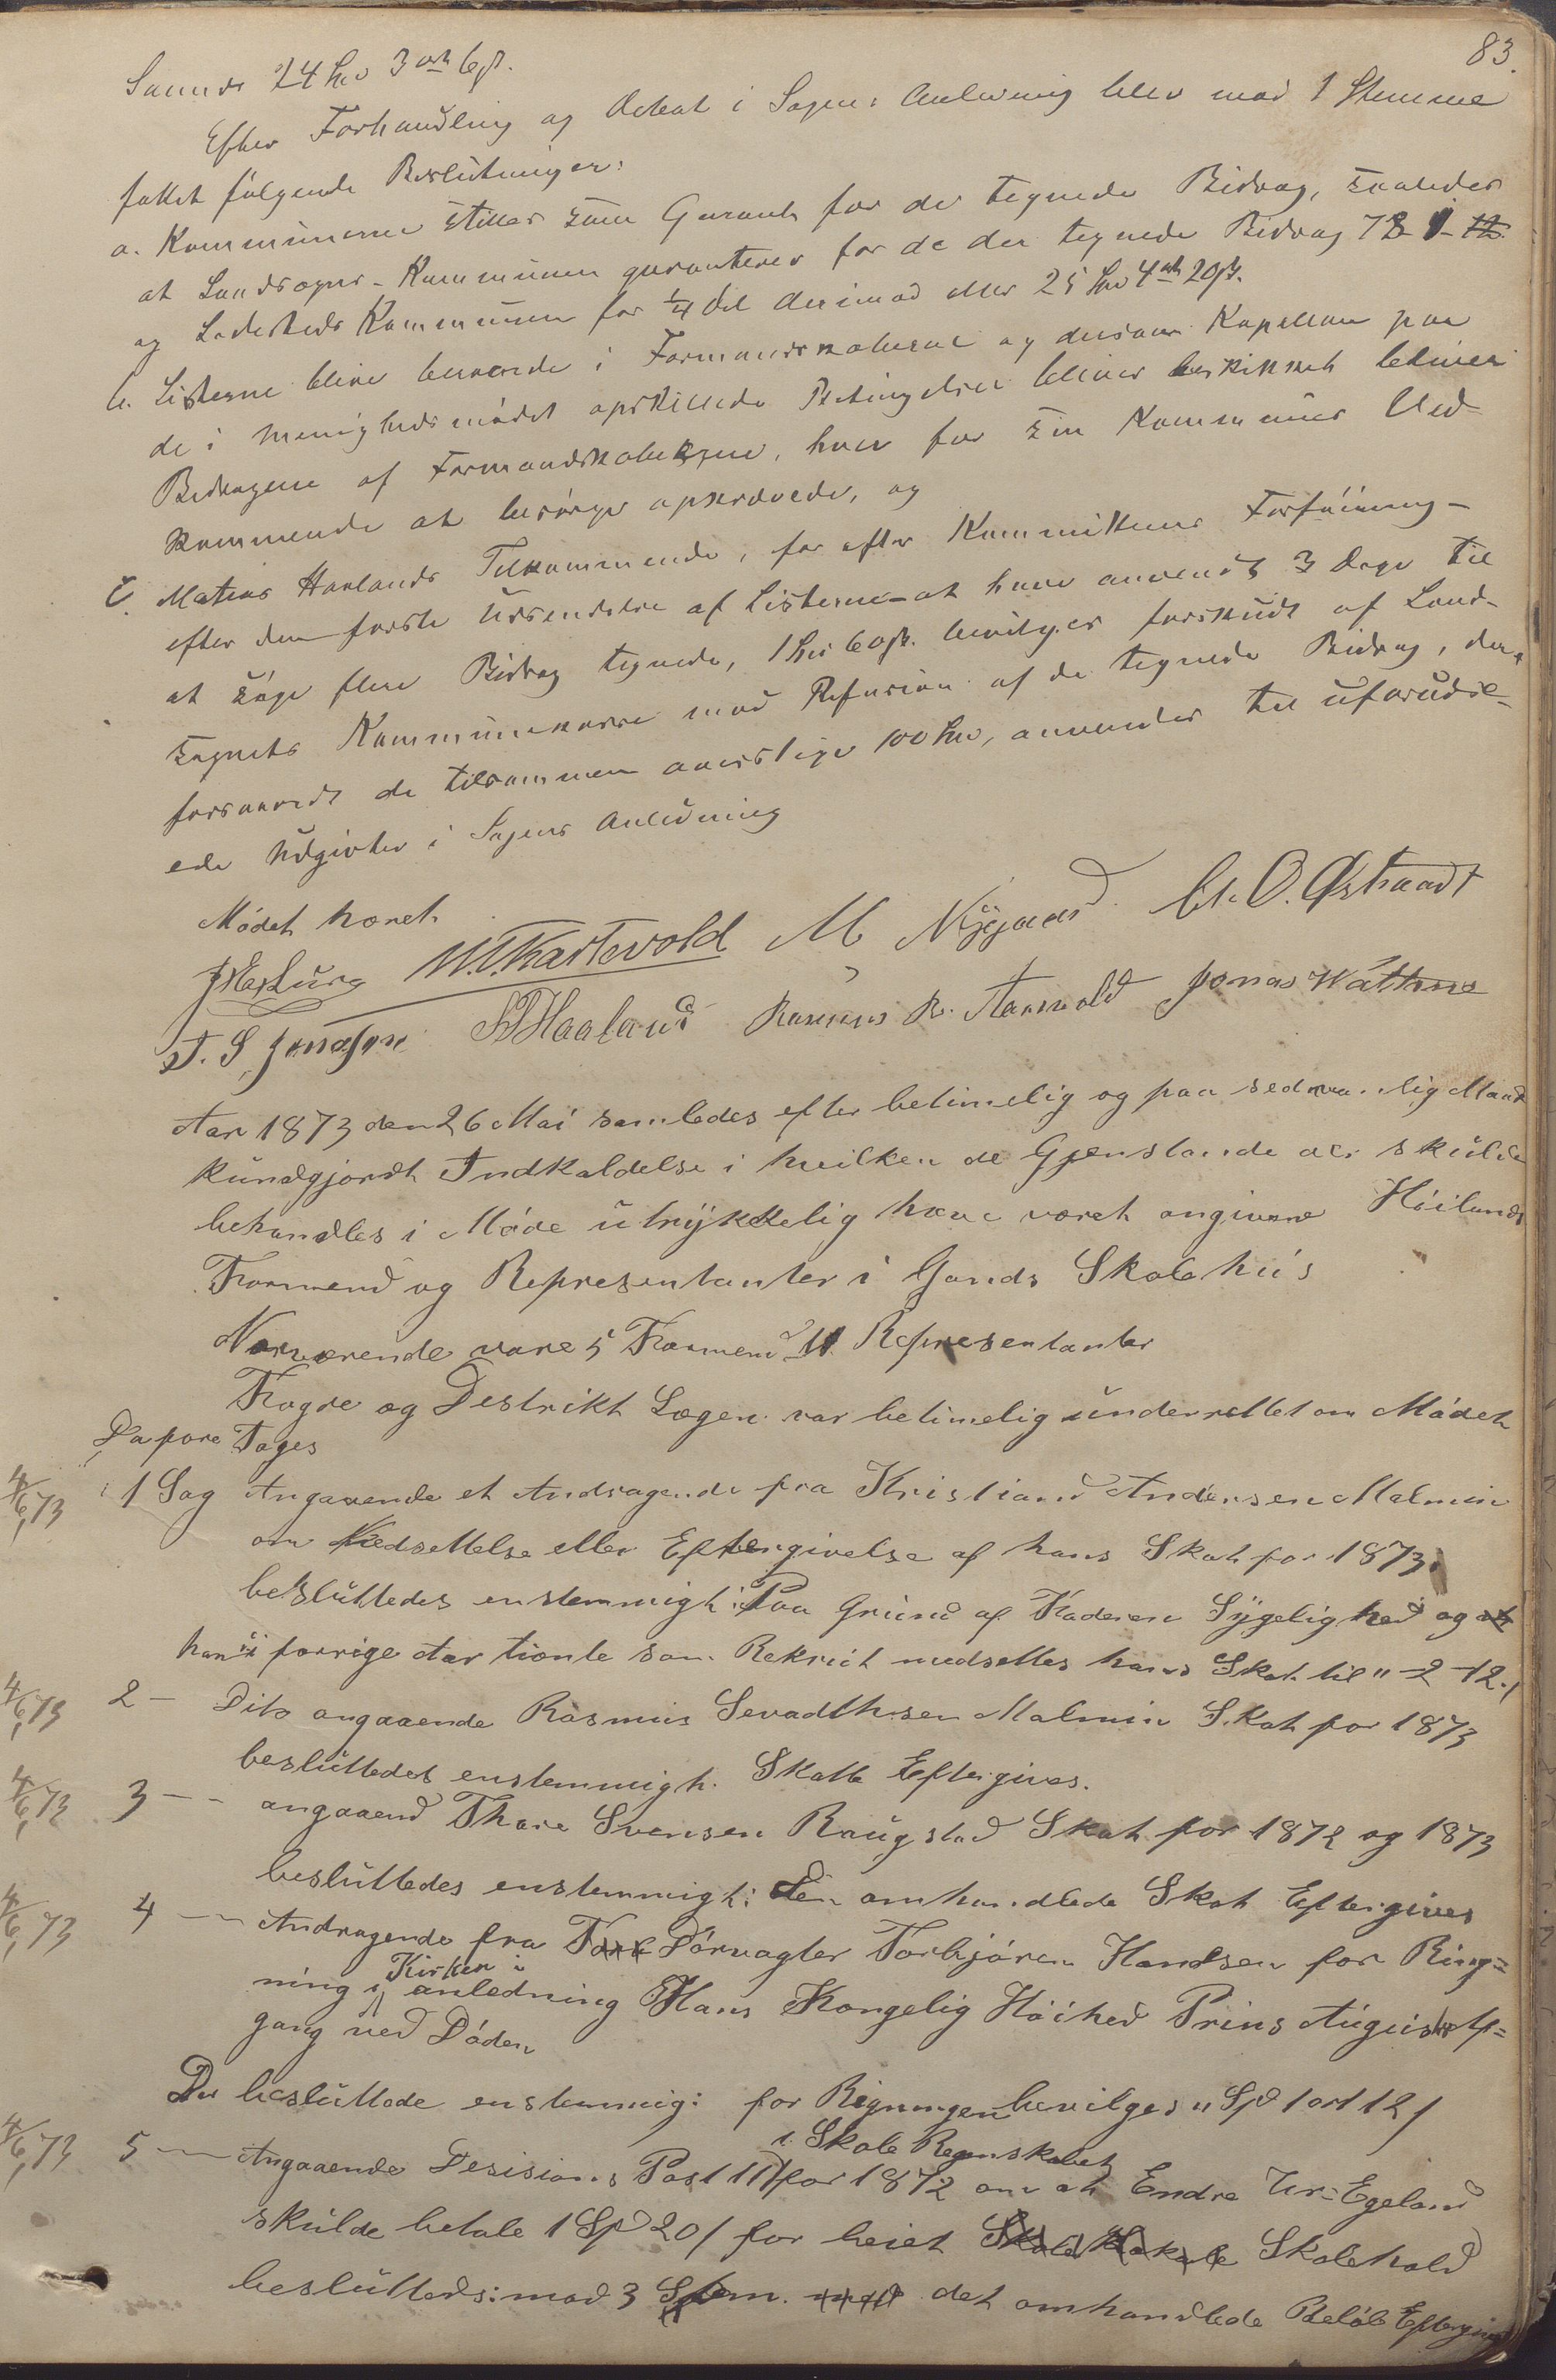 83.
Samme 24 Spd 3 ort 6 ß.
Efter Forhandling og Debat i Sagens Anledning blev mod 1 Stemme
fattet følgende Beslutninger:
a. Kommunerne stiller som Garant for de tegnede Bidrag, saaledes
at Landsogns-Kommunen garanterer for de der tegnede Bidrag
og Ladesteds Kommunen for ¼ Del derimod eller 25 Spd 4 ort 20 ß.
b. Listerne blive beroende i Formandskaberne og dersom Kapellan paa
de i Menighedsmødet opstillede Betingelser bliver beskikket bliver
Bidragene af Formandskaberne, hver for sin Kommunes Ved-
kommende at besørge opkrævede, og
c. Matias Haalands Tilkommende, for efter Kommitteens Forføining -
efter den første Udsendelse af Listerne - at have anvendt 3 Dage til
at søge flere Bidrag tegnede, 1 Spd 60 ß. bevilges forskudt af Land-
sognets Kommunekasse mod Refusion af de tegnede Bidrag, der,
forsaavidt de tilsammen overstige 100 Spd, anvendes til uforudse-
ede Udgivter i Sagens Anledning
Mødet hævet
M Nygaard O. Østraadt
T. S. Jonassen Haaland Rasmus R. Aarsvold Jonas Wattne
Aar 1873 den 26 Mai samledes efter betimelig og paa sedvanlig Maade
kundgjordt Indkaldelse i hvilken de Gjenstande der skulde
behandles i Møde utrykkelig have været angivene Høilands
Formend og Representanter i Gands Skolehus
Nærværende vare 5 Formend 11 Representanter
Fogde og Destrikt Lægen var betimelig underrettet om Mødet
Da fore Toges
4/6 73 1 Sag Angaaende et Andragende fra Kristiand Andersen Malmin
om Nedsettelse eller Eftergivelse af hans Skat for 1873.
besluttedes enstemmigt: Paa Grund af Faderen Sygelighed og at
han i forrige Aar tiente som Rekrut nedsettes hans Skat til " - 2 - 12 ß
4/6 73 2 - Dito angaaende Rasmus Sevadthsen Malmin Skat for 1873
besluttedes enstemmigt. Skatte Eftergives.
4/6 73 3 - - angaaend Thore Svensen Raugstad Skat for 1872 og 1873
besluttedes enstemmigt: Den omhandlede Skat Eftergives
4/6 73 4 - Andragende fra Dørvagter Torbjøren Handsen for Ring=
ning i Kirken i anledning Hans Kongelig Høihed Prins August Af=
gang ved Døden
Der besluttede enstemmig: for Rigningen bevilges " Spd 1 ort 12 ß
4/6 73 5 - Angaaende Desisions Post 11 i Skole Regnskabet for 1872 om at Endre Egeland
skulde betale 1 Spd 20 ß for leiet Skole Lokale Skolehold
besluttes: mod 3 Stem. det omhandlede Beløb Eftergives